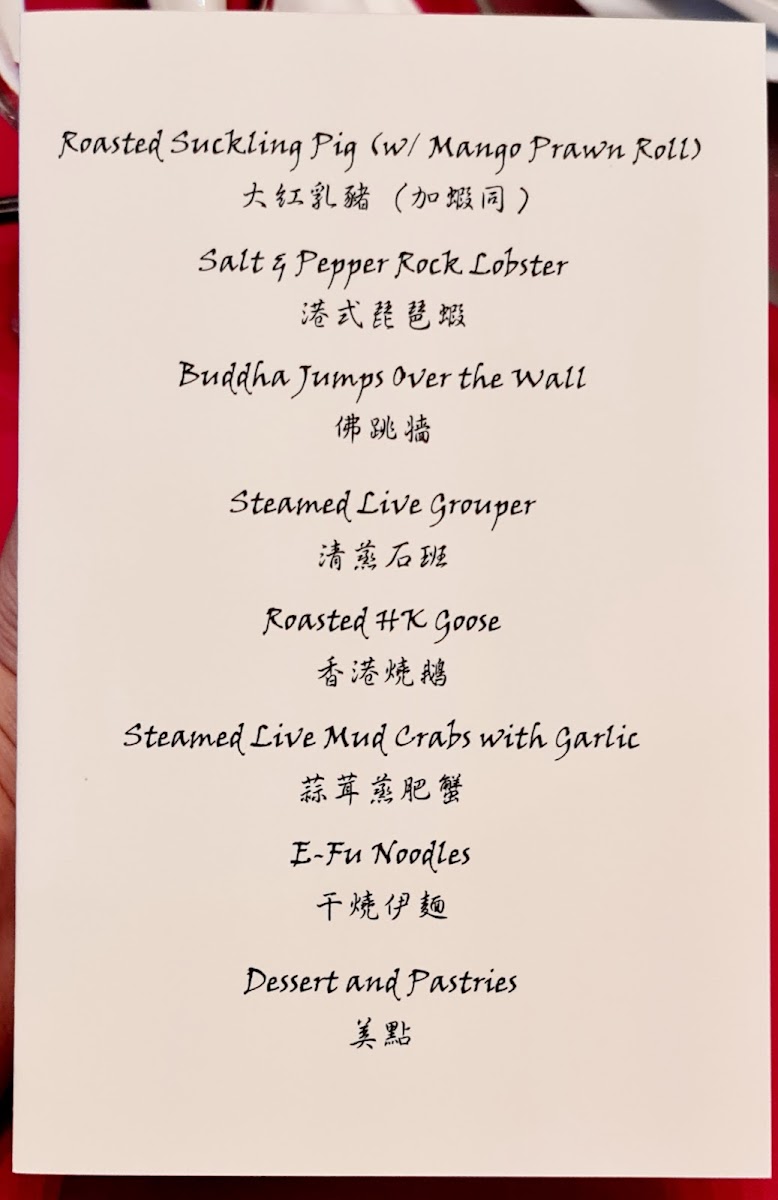 Roasted Suckling Pig (w/ Mango Prawn Roll)
大红乳豬（加蝦同）
Salt & Pepper Rock Lobster
港式琵琶蝦
Buddha Jumps Over the Wall
佛跳牆
Steamed Live Grouper
清蒸石班
Roasted HK Goose
香港燒鵝
Steamed Live Mud Crabs with Garlic
蒜茸蒸肥蟹
E-Fu Noodles
干燒伊麵
Dessert and Pastries
美點